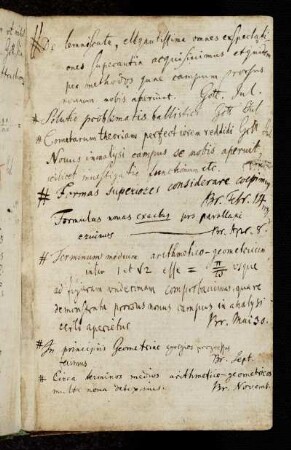 # De lemniscata, elegantissima omnes exspectati
ones superantia acquisivimus et quidem
per methodos quae campum prorsus
novum nobis aperiunt. Gott. Jul.
* Solutio problematis ballistici Gott. Jul.
* Cometarum theoriam perfectiorem reddidi Gott.
Novus in analysi campus se nobis aperuit,
scilicet investigatio functionum etc.
# Formas superiores considerare coepimus
Br. Febr. 14
Formulas novas exactas pro parallaxi
eruimus Br. Apr. 8
# Terminum medium arithmetico-geometricum
inter 1 et √2 esse = π/ϖ usque
ad figuram undecimam comprobavimus, quare
demonstrata prorsus novus campus in analysi
certo aperietur Br. Mai 30.
# In principiis Geometriae egregios progressus
fecimus Br. Sept.
# Circa terminos medios arithmetico-geometricos
multa nova deteximus. Br. Novemb.